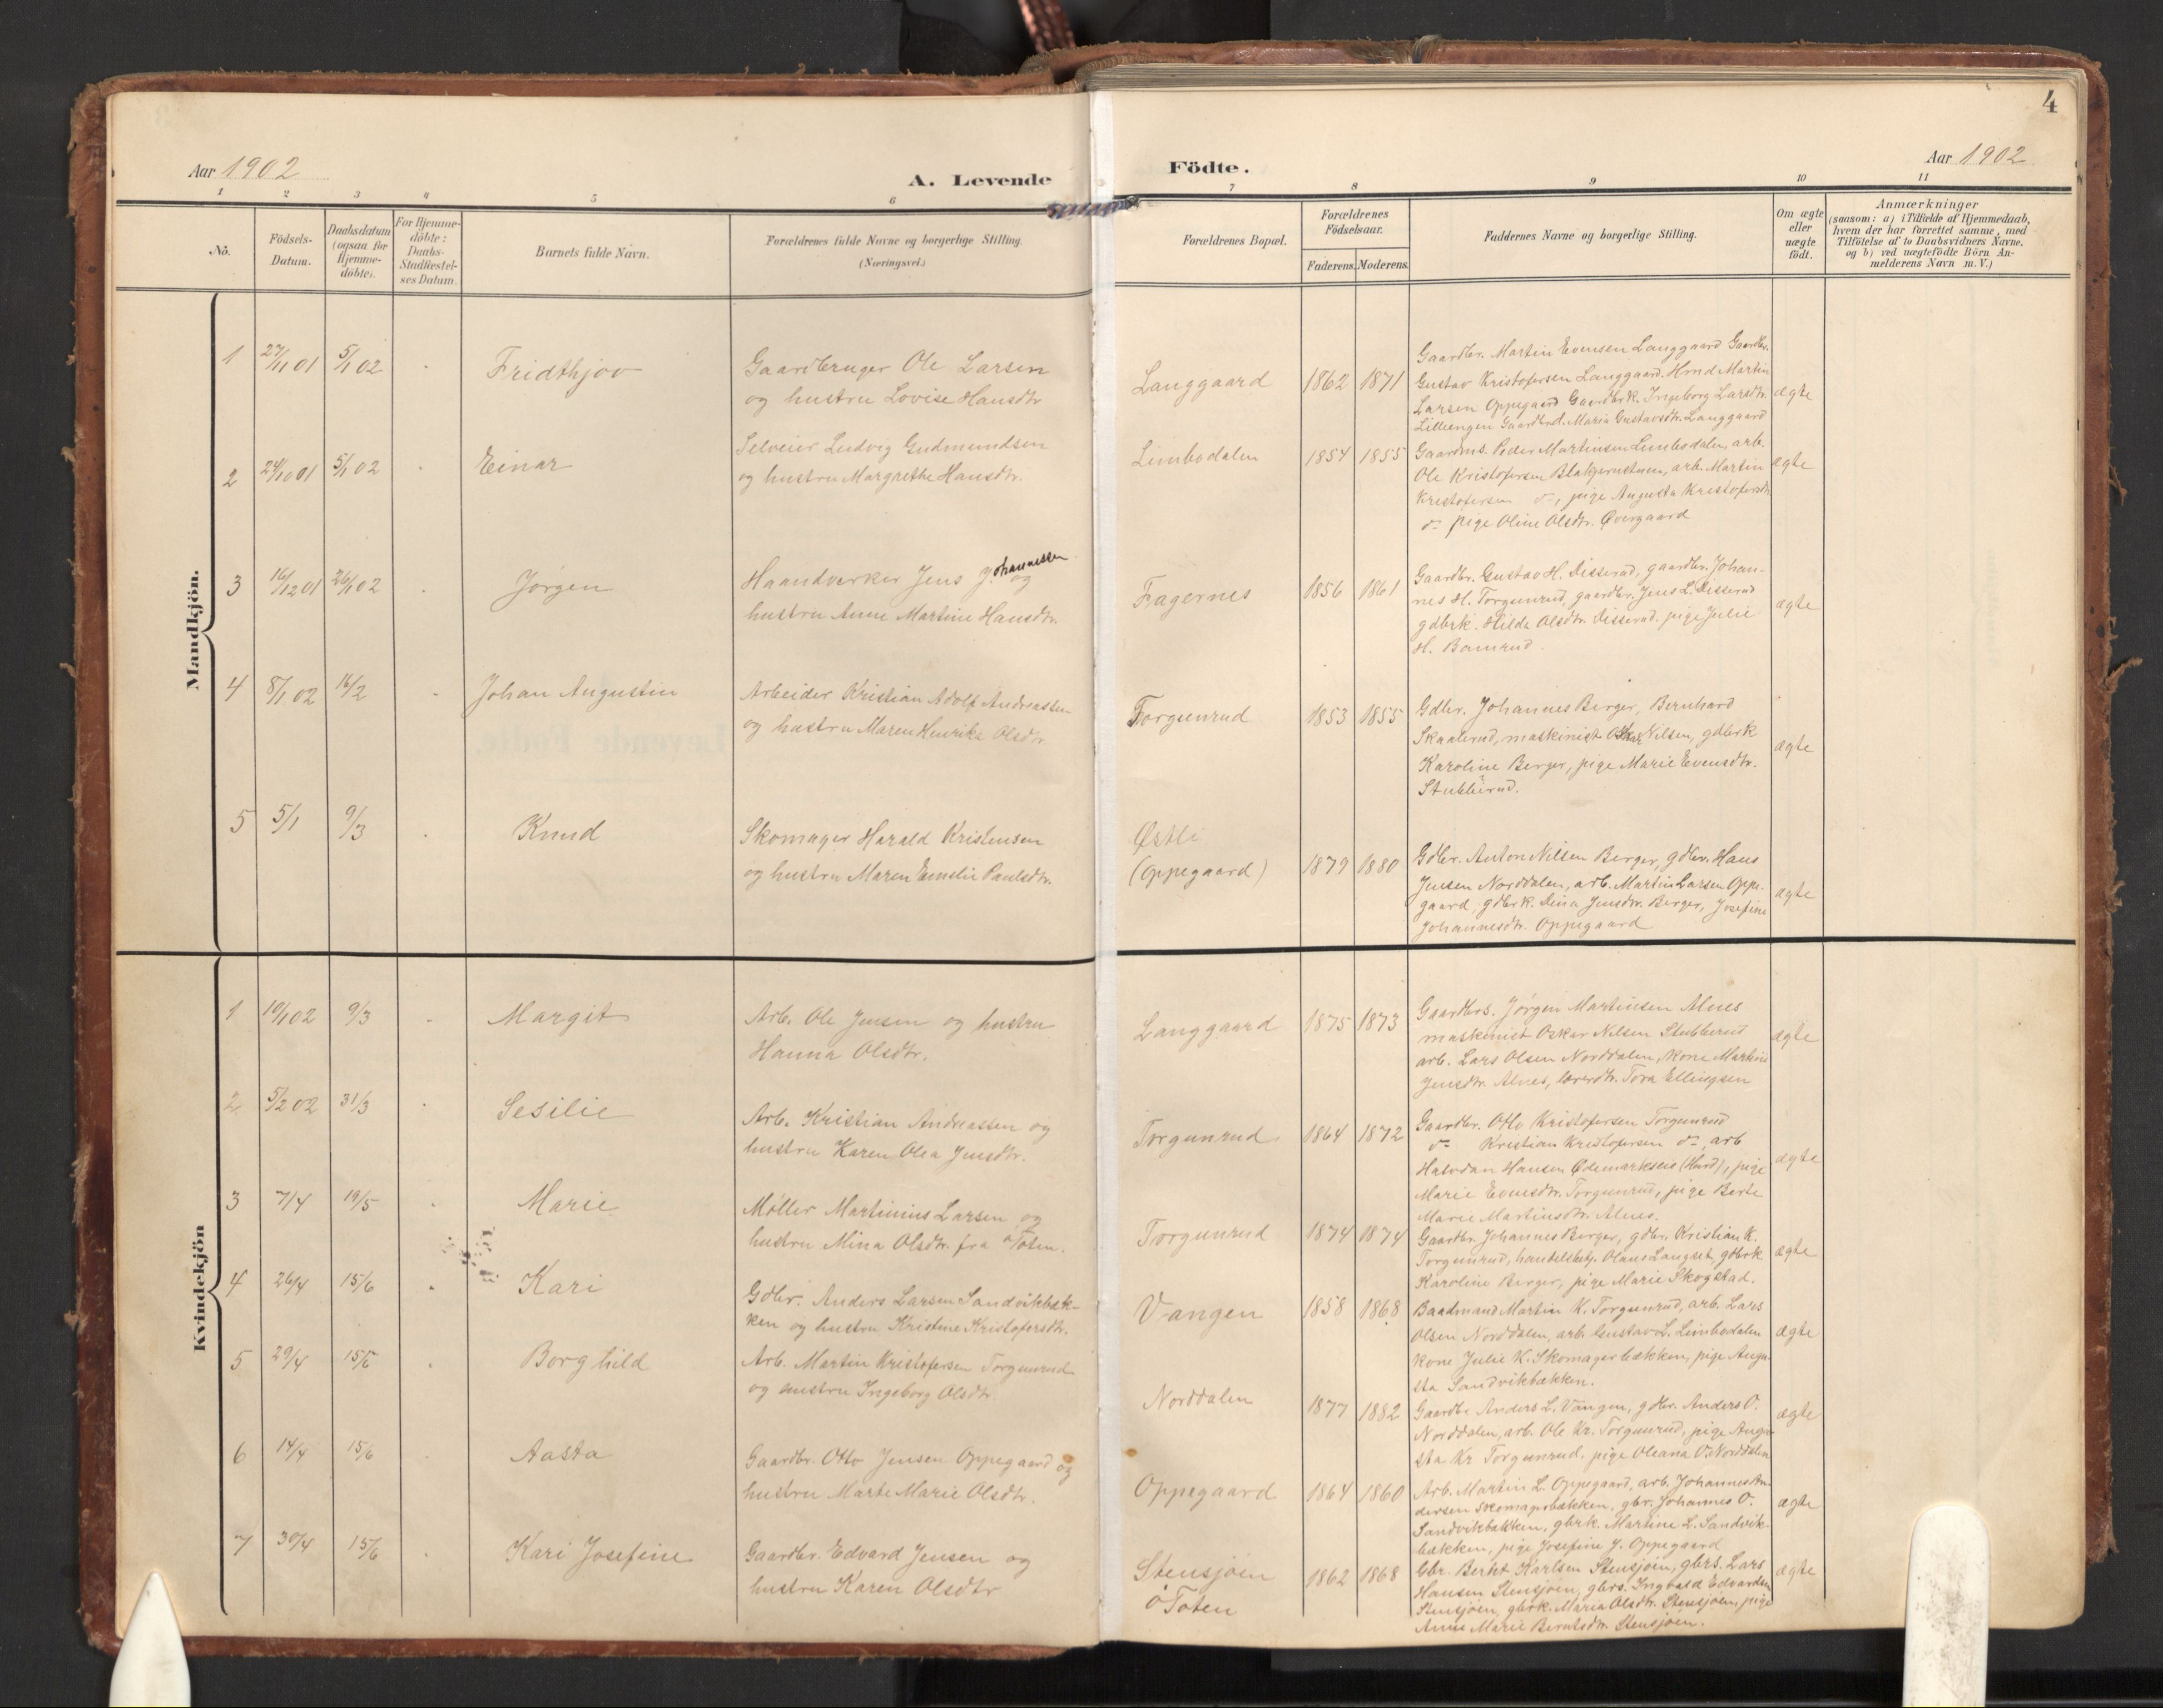 4
Aar 1902
A. Levende
Födte.
Aar 1902
1 2 3 4 5 6 7 8 9 10 11
No.
Födsels-
Datum.
Daabsdatum
(ogsaa for
Hjemme-
döbte).
For Hjemme-
döbte:
Daabs-
Stadfæstel-
ses Datum.
Barnets fulde Navn.
Forældrenes fulde Navne og borgerlige Stilling.
(Næringsvei.)
Forældrenes Bopæl.
Forældrenes
Födselsaar.
Faderens. Moderens.
Faddernes Navne og borgerlige Stilling.
Om ægte
eller
uægte
födt.
Anmærkninger
(saasom: a) i Tilfælde af Hjemmedaab,
hvem der har forrettet samme, med
Tilföielse af to Daabsvidners Navne.
og b) ved uægtefödte Börn An-
melderens Navn m. V.)
Mandkjön.
1 27/11 01 5/1 02 Fridthjov
Gaardbruger Ole Larsen
og hustru Lovise Hansdtr
Langgaard 1862 1871
Gaardbr. Martin Evensen Langgaard Gaardbr.
Gustav Kristofersen Langgaard. Hmd Martin
Larsen Oppegaard Gaardbrk. Ingeborg Larsdtr.
Lillengen Gaardbrd. Maria Gustavsdtr. Langgaard
ægte
2 24/10 01 5/1 02 Einar
Selveier Ludvig Gudmundsen
og hustru Margrethe Hansdtr.
Limbodalen 1854 1855
Gaardms. Peder Martinsen Limbodalen, arb.
Ole Kristofersen Blakjernstuen, arb. Martin
Kristofersen do, pige Augusta Kristofersdtr
do pige Oline Olsdtr. Overgaard
ægte
3 16/12 01 26/1 02 Jørgen
Haandverker Jens Johannessen og
hustru Anne Martine Hansdtr.
Fagernes 1856 1861
Gaardbr. Gustav H. Disserud, gaardbr. Johan-
nes H. Torgunrud, gaardbr. Jens L. Disserud
gdbrk. Hilda Olsdtr. Disserud. pige Julie
H. Bomrud.
ægte
4 8/1 02 16/2 Johan Augustin
Arbeider Kristian Adolf Andreassen
og hustru Maren Henrika Olsdtr
Torgunrud 1853 1855
Gdbr. Johannes Berger, Bernhard
Skaalerud, maskinist Oskar Nilsen, gdbrk
Karoline Berger, pige Marie Evensdtr.
Stubberud.
ægte
5 5/1 9/3 Knud
Skomager Harald Kristensen
og hustru Maren Emelie Paulsdtr.
Østli
(Oppegaard) 1879 1880
Gdbr. Anton Nilsen Berger, gdbr. Hans
Jensen Norddalen, arb. Martin Larsen Oppe-
gaard, gdbrk. Dina Jensdtr. Berger, Josefine
Johannesdtr. Oppegaard
ægte
Kvindekjön
1 10/1 02 9/3 Margit
Arb. Ole Jensen og hustru
Hanna Olsdtr.
Langgaard 1875 1873
Gaardbrs. Jørgen Martinsen Alnes
maskinist Oskar Nilsen Stubberud
arb. Lars Olsen Norddalen, kone Martine
Jensdtr. Alnes, lærerdtr. Tora Ellingsen
ægte
2 5/2 02 31/3 Sesilie
Arb. Kristian Andreassen og
hustru Karen Olea Jensdtr.
Torgunrud 1864 1872
Gaardbr. Otto Kristofersen Torgunrud
do Kristian Kristofersen do, arb
Halvdan Hansen Ødemarkseie (Hurd), pige
Marie Evensdtr. Torgunrud, pige Berte
Marie Martinsdtr. Alnes.
ægte
3 7/4 19/5 Marie
Møller Martinius Larsen og
hustru Mina Olsdtr. fra ø Toten.
Torgunrud 1874 1874
Gaardbr. Johannes Berger, gdbr. Kristian K.
Torgunrud, handelsbetj. Olaus Langset, gdbrk
Karoline Berger, pige Marie Skogstad.
ægte
4 26/4 15/6 Kari
Gdbr. Anders Larsen Sandvikbæk-
ken og hustru Kristine Kristofersdtr.
Vangen 1858 1868
Baadmand Martin K. Torgunrud, arb. Lars
Olsen Norddalen, arb. Gustav L. Limbodalen
kone Julie K. Skomagerbækken, pige Augu-
sta Sandvikbækken.
ægte
5 29/4 15/6 Borghild
Arb. Martin Kristofersen Torgunrud
og hustru Ingeborg Olsdtr.
Norddalen 1877 1882
Gaardbr Anders L. Vangen, gdbr. Anders O.
Norddalen, arb. Ole Kr. Torgunrud, pige Augu-
sta Kr Torgunrud, pige Oleana O. Norddalen
ægte
6 14/4 15/6 Aasta
Gaardbr. Otto Jensen Oppegaard og
hustru Marte Marie Olsdtr.
Oppegaard 1864 1860
Arb. Martin L. Oppegaard, arb. Johannes An-
dersen Skomagerbækken, gbr. Johannes O.
Sandvikbækken, gbrk. Martine L. Sandvik-
bækken, pige Josefine J. Oppegaard
ægte
7 30/4 15/6 Kari Josefine
Gaardbr. Edvard Jensen og
hustru Karen Olsdtr
Stensjøen
ø Toten 1862 1868
Gbr. Bernt Karlsen Stensjøen, gbrs. Lars
Hansen Stensjøen, gbrs. Ingvald Edvardsen
Stensjøen, gbrk. Maria Olsdtr. Stensjøen, pige
Anne Marie Berntsdtr. Stensjøen.
ægte